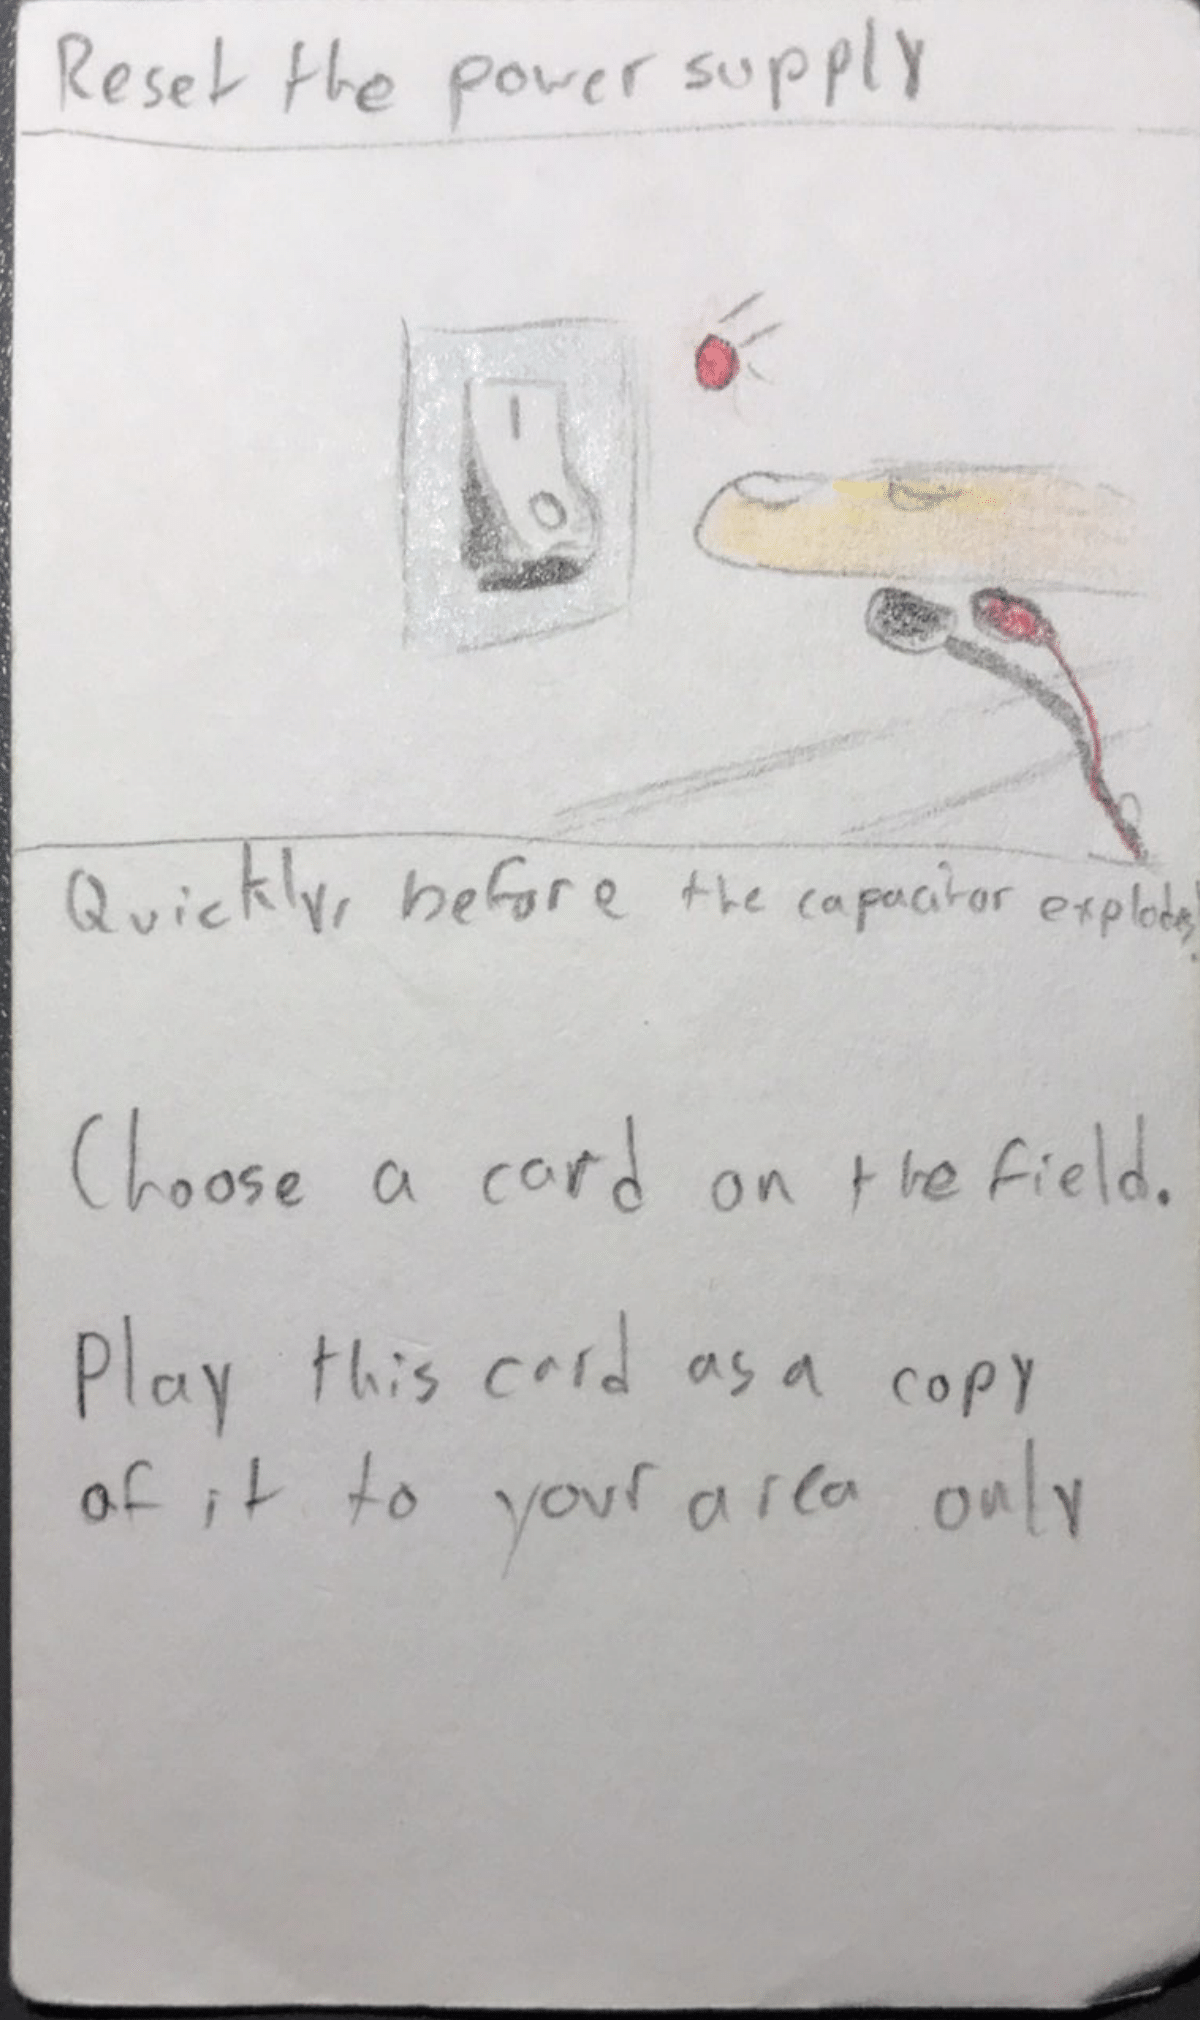 Reset the power supply
I
O
Quickly, before the capacitor explodes!
Choose a card on the field.
Play this card as a copy
of it to your area only